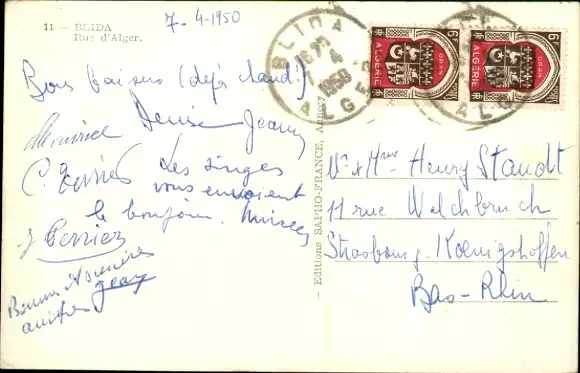 11 — BLIDA
Rue d'Alger.
7-4-1950
Bons baisers (déjà chaud!)
Maurice Denise Jeany
C. Les singes
vous envoient
le bonjour.
J Perrier
Bonnes
amitiés Jean
— Editions SAPHO-FRANCE, Annecy
BLIDA
7 4
1950
ALGER
6F
ORAN
ALGÉRIE
6F
ORAN
ALGÉRIE
Mr & Mme Henry Staudt
11 rue Welchbruch
Strasbourg-Kœnigshoffen
Bas-Rhin